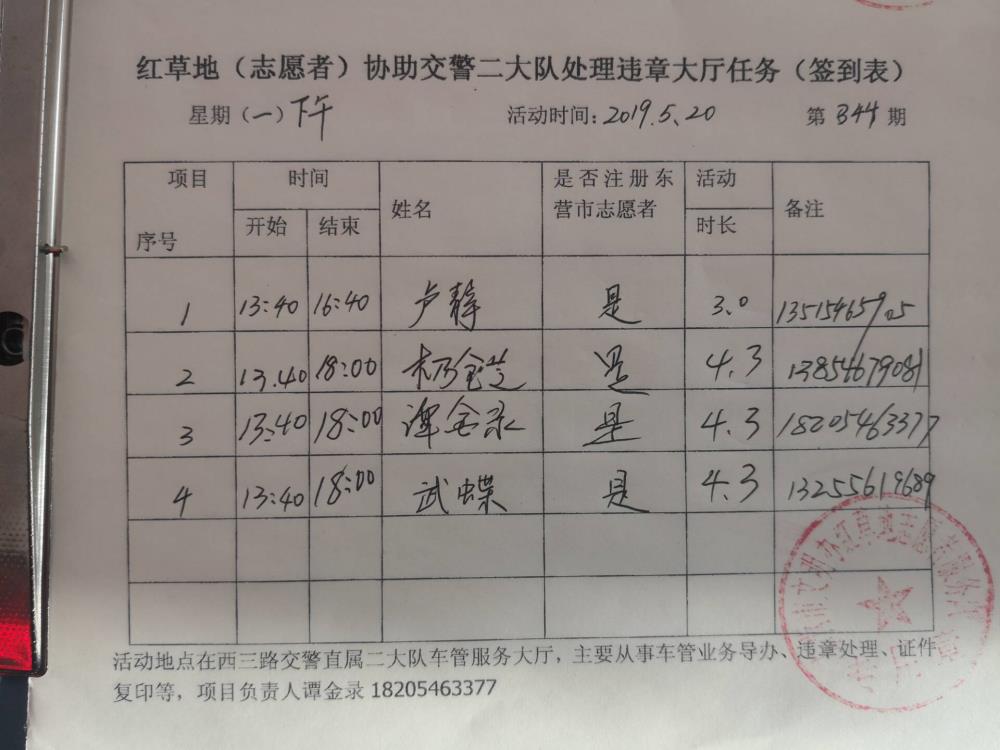 红草地（志愿者）协助交警二大队处理违章大厅任务（签到表）
星期（一）下午 活动时间：2019.5.20 第 344 期
项目 时间 姓名 是否注册东营市志愿者 活动时长 备注
序号 开始 结束
1 13:40 16:40 卢静 是 3.0
2 13.40 18:00 杨金芝 是 4.3 13854679081
3 13:40 18:00 谭金录 是 4.3 18205463377
4 13:40 18:00 武蝶 是 4.3 13255619689
活动地点在西三路交警直属二大队车管服务大厅，主要从事车管业务导办、违章处理、证件
复印等，项目负责人谭金录 18205463377